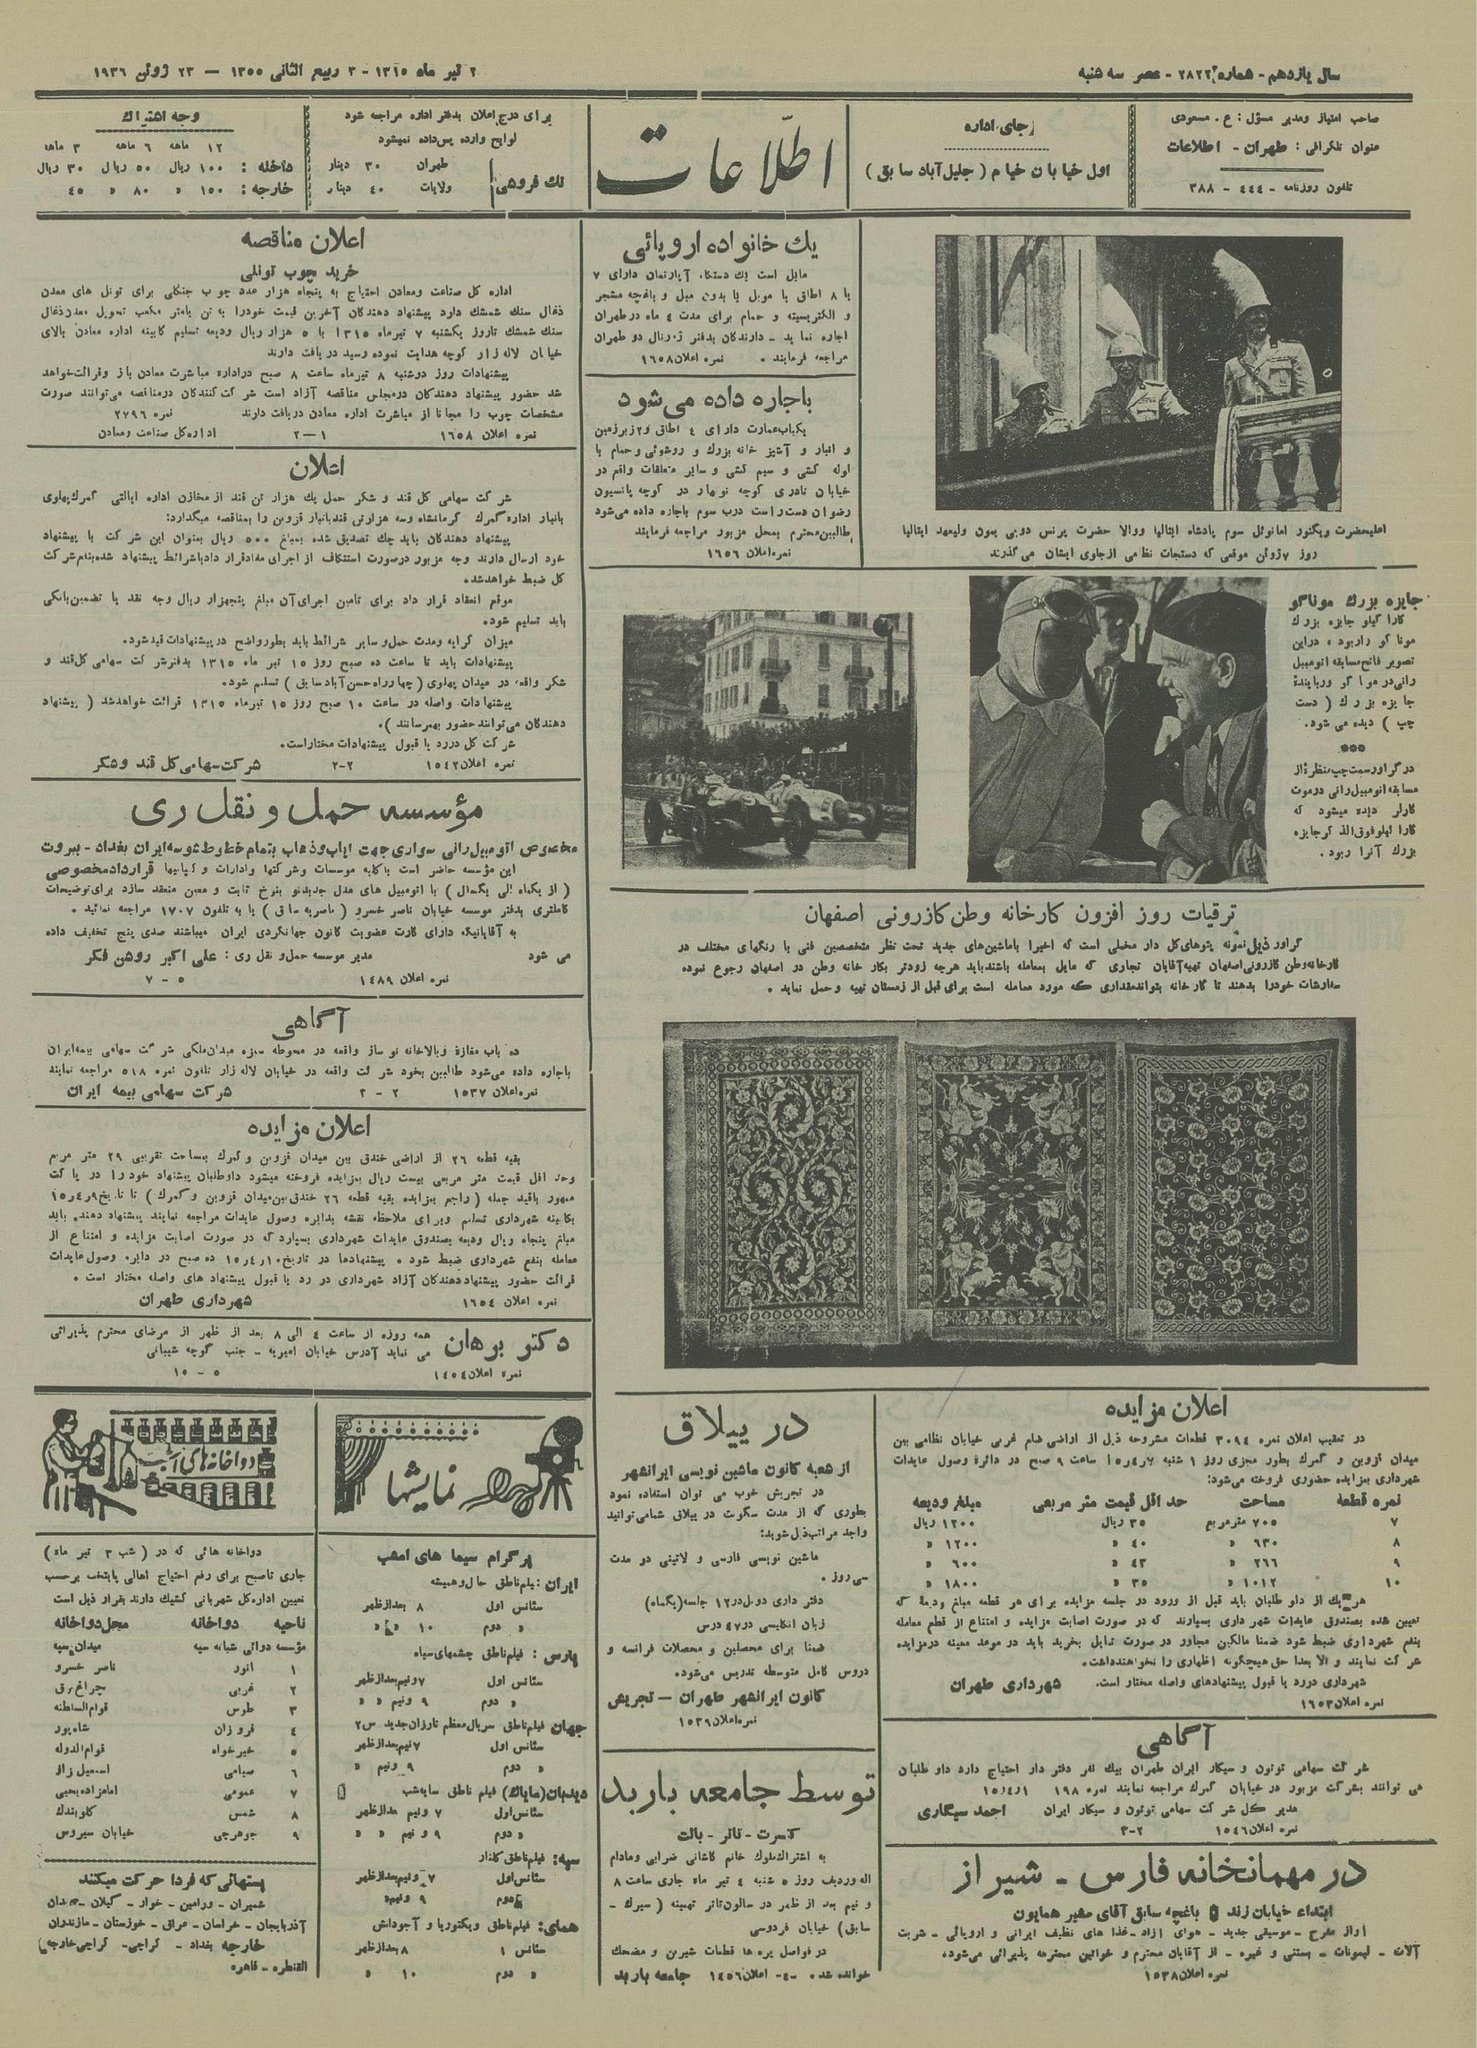 سال یازدهم - شماره ۲۸۲۲ - عصر سه شنبه
۲ تیر ماه ۱۳۱۵ - ۳ ربیع الثانی ۱۳۵۵ — ۲۳ ژوئن ۱۹۳۶
صاحب امتیاز و مدیر مسؤل : ع . مسعودی
عنوان تلگرافی : طهران - اطلاعات
تلفون روزنامه - ۴۴۴ - ۳۸۸
جای اداره
اول خیابان خیام ( جلیل آباد سابق )
اطلاعات
برای درج اعلان بدفتر اداره مراجعه شود
لوایح وارده پس داده نمیشود
تك فروشی
طهران ۳۰ دینار
ولایات ۴۰ دینار
وجه اشتراك
۱۲ ماهه ۶ ماهه ۳ ماهه
داخله : ۱۰۰ ریال ۵۰ ریال ۳۰ ریال
خارجه : ۱۵۰ » ۸۰ » ۴۵
اعلیحضرت ویکتور امانوئل سوم پادشاه ایتالیا ووالا حضرت پرنس دوپی یمون ولیعهد ایتالیا
روز ۷ ژوئن موقعی که دستجات نظامی از جلوی ایشان می گذرند
جایزه بزرك موناکو
کارا کیلو جایزه بزرك
موناکو را ربود ، در این
تصویر فاتح مسابقه اتومبیل
رانی در موناکو و رباینده
جایزه بزرك ( دست
چپ ) دیده می شود .
***
در گراور سمت چپ منظره از
مسابقه اتومبیل رانی در مونت
کارلو دیده میشود که
بزرك آنرا ربود .
ترقیات روز افزون کارخانه وطن کازرونی اصفهان
گراور ذیل نمونه پتوهای گل دار مخملی است که اخیرا با ماشین های جدید تحت نظر متخصصین فنی با رنگهای مختلف در
کارخانه وطن کازرونی اصفهان تهیه آقایان تجاری که مایل بمعامله باشند باید هرچه زودتر بکار خانه وطن در اصفهان رجوع نموده
سفارشات خودرا بدهند تا کارخانه بتواند مقداری که مورد معامله است برای قبل از زمستان تهیه و حمل نماید .
اعلان مزایده
در تعقیب اعلان نمره ۳۰۹۴ قطعات مشروحه ذیل از اراضی ضلع غربی خیابان نظامی بین
میدان قزوین و گمرك بطور مجزی روز ۱ شنبه ۱۵٫۴٫۷ ساعت ۹ صبح در دائره وصول عایدات
شهرداری بمزایده حضوری فروخته می‌شود :
نمره قطعه مساحت حد اقل قیمت متر مربعی مبلغ ودیعه
۷ ۷۰۵ متر مربع ۳۵ ریال ۱۲۰۰ ریال
۸ ۶۳۰ » ۴۰ » ۱۲۰۰ »
۹ ۲۶۶ » ۴۳ » ۶۰۰ »
۱۰ ۱۰۱۲ » ۳۵ » ۱۸۰۰ »
هر یك از داو طلبان باید قبل از ورود در جلسه مزایده برای هر قطعه مبلغ ودیعه که
تعیین شده بصندوق عایدات شهرداری بسپارند که در صورت اصابت مزایده و امتناع از قطع معامله
بنفع شهرداری ضبط شود ضمنا مالکین مجاور در صورت تمایل بخرید باید در موعد معینه در مزایده
شرکت نمایند و الا بعدا حق هیچگونه اظهاری را نخواهند داشت .
شهرداری در رد یا قبول پیشنهادهای واصله مختار است . شهرداری طهران
نمره اعلان ۱۶۵۳
آگاهی
شرکت سهامی توتون و سیگار ایران طهران بیك نفر دفتر دار احتیاج دارد داو طلبان
می توانند بشرکت مزبور در خیابان گمرك مراجعه نمایند نمره ۱۹۸ ۱۵٫۴٫۱
مدیر کل شرکت سهامی توتون و سیگار ایران احمد سیگاری
نمره اعلان ۱۵۴۶ ۲-۳
در مهمانخانه فارس - شیراز
ابتداء خیابان زند باغچه سابق آقای مشیر همایون
آواز مفرح - موسیقی جدید - هوای آزاد - غذا های نظیف ایرانی و اروپائی - شربت
آلات - لیمونات - بستنی و غیره - از آقایان محترم و خواتین محترمه پذیرائی می‌شود .
نمره اعلان ۱۵۳۸
یك خانواده اروپائی
مایل است یك دستگاه آپارتمان دارای ۷
یا ۸ اطاق با موبل یا بدون مبل و باغچه مشجر
و الکتریسیته و حمام برای مدت ۴ ماه در طهران
اجاره نماید - دارندگان بدفتر ژورنال دو طهران
مراجعه فرمایند . نمره اعلان ۱۶۵۸
باجاره داده می شود
یکباب عمارت دارای ۴ اطاق و ۲ زیر زمین
و انبار و آشپز خانه بزرك و روشوئی و حمام با
لوله کشی و سیم کشی و سایر متعلقات واقع در
خیابان نادری کوچه نوبهار در کوچه پانسیون
رضوان دست راست درب سوم باجاره داده می‌شود
طالبین محترم بمحل مزبور مراجعه فرمایند
نمره اعلان ۱۶۵۶
در ییلاق
از شعبه کانون ماشین نویسی ایرانشهر
در تجریش خوب می توان استفاده نمود
بطوری که از مدت سکونت در ییلاق شما می توانید
واجد مراتب ذیل شوید :
ماشین نویسی فارسی و لاتینی در مدت
سی روز .
دفتر داری دوبل در ۱۲ جلسه ( یکماه )
زبان انگلیسی در ۴۷ درس
ضمنا برای محصلین و محصلات فرانسه و
دروس کامل متوسطه تدریس می‌شود .
کانون ایرانشهر طهران — تجریش
نمره اعلان ۱۵۳۹
توسط جامعه باربد
کنسرت - تاتر - بالت
به اشتراك ملوك خانم کاشانی ضرابی و مادام
اله وردیف روز ۵ شنبه ۴ تیر ماه جاری ساعت ۸
و نیم بعد از ظهر در سالون تاتر تهمینه ( سیرك -
سابق ) خیابان فردوسی
در فواصل پرده ها قطعات شیرین و مضحك
خوانده شد . ۴- اعلان ۱۴۵۶ جامعه باربد
اعلان مناقصه
خرید چوب تونلی
اداره کل صناعت و معادن احتیاج به پنجاه هزار عدد چوب جنگلی برای تونل های معدن
ذغال سنك شمشك دارد پیشنهاد دهندگان آخرین قیمت خودرا به تن یا متر مکعب تحویل معدن ذغال
سنك شمشك تا روز یکشنبه ۷ تیر ماه ۱۳۱۵ با ۵ هزار ریال ودیعه تسلیم کابینه اداره معادن بالای
خیابان لاله زار کوچه هدایت نموده رسید دریافت دارند
پیشنهادات روز دوشنبه ۸ تیر ماه ساعت ۸ صبح در اداره مباشرت معادن باز و قرائت خواهد
شد حضور پیشنهاد دهندگان در مجلس مناقصه آزاد است شرکت کنندگان در مناقصه می توانند صورت
مشخصات چوب را مجانا از مباشرت اداره معادن دریافت دارند نمره ۲۷۹۶
نمره اعلان ۱۶۵۸ ۱—۲ اداره کل صناعت و معادن
اعلان
شرکت سهامی کل قند و شکر حمل یك هزار تن قند از مخازن اداره ایالتی گمرك پهلوی
بانبار اداره گمرك کرمانشاه و سه هزار تن قند بانبار قزوین را بمناقصه میگذارد :
پیشنهاد دهندگان باید چك تصدیق شده بمبلغ ۵۰۰ ریال بعنوان این شرکت با پیشنهاد
خود ارسال دارند وجه مزبور در صورت استنکاف از اجرای مفاد قرار داد با شرائط پیشنهاد شده بنام شرکت
کل ضبط خواهد شد .
موقع انعقاد قرار داد برای تامین اجرای آن مبلغ پنجهزار ریال وجه نقد یا تضمین بانکی
باید تسلیم شود .
میزان کرایه و مدت حمل و سایر شرائط باید بطور واضح در پیشنهادات قید شود .
پیشنهادات باید تا ساعت ده صبح روز ۱۵ تیر ماه ۱۳۱۵ بدفتر شرکت سهامی کل قند و
شکر واقعه در میدان پهلوی ( چهار راه حسن آباد سابق ) تسلیم شود .
پیشنهادات واصله در ساعت ۱۰ صبح روز ۱۵ تیر ماه ۱۳۱۵ قرائت خواهد شد ( پیشنهاد
دهندگان می توانند حضور بهمرسانند ) .
شرکت کل در رد یا قبول پیشنهادات مختار است .
نمره اعلان ۱۵۴۲ ۲-۲ شرکت سهامی کل قند و شکر
مؤسسه حمل و نقل ری
مخصوص اتومبیل رانی سواری جهت ایاب و ذهاب بتمام خطوط شوسه ایران بغداد - بیروت
این مؤسسه حاضر است با کلیه موسسات و شرکتها و ادارات و کمپانیها قرارداد مخصوصی
( از یکماه الی یکسال ) با اتومبیل های مدل جدید نو بنرخ ثابت و معین منعقد سازد برای توضیحات
کاملتری بدفتر موسسه خیابان ناصر خسرو ( ناصریه سابق ) یا به تلفون ۱۷۰۷ مراجعه نمائید .
به آقایانیکه دارای کارت عضویت کانون جهانگردی ایران میباشند صدی پنج تخفیف داده
می شود مدیر موسسه حمل و نقل ری : علی اکبر روشن فکر
نمره اعلان ۱۴۸۹ ۵ - ۷
آگاهی
ده باب مغازه و بالاخانه نو ساز واقعه در محوطه سبزه میدان ملکی شرکت سهامی بیمه ایران
باجاره داده می‌شود طالبین بخود شرکت واقعه در خیابان لاله زار تلفون نمره ۵۱۸ مراجعه نمایند
نمره اعلان ۱۵۳۷ ۲ - ۳ شرکت سهامی بیمه ایران
اعلان مزایده
بقیه قطعه ۲۶ از اراضی خندق بین میدان قزوین و گمرك بمساحت تقریبی ۲۹ متر مربع
وحد اقل قیمت متر مربعی بیست ریال بمزایده فروخته میشود داوطلبان پیشنهاد خود را در پاکت
ممهور باقید جمله ( راجع بمزایده بقیه قطعه ۲۶ خندق بین میدان قزوین و گمرك ) تا تاریخ ۱۵٫۴٫۹
بکابینه شهرداری تسلیم و برای ملاحظه نقشه بدایره وصول عایدات مراجعه نمایند پیشنهاد دهنده باید
مبلغ پنجاه ریال ودیعه بصندوق عایدات شهرداری بسپارد که در صورت اصابت مزایده و امتناع از
معامله بنفع شهرداری ضبط شود . پیشنهادها در تاریخ ۱۵٫۴٫۱۰ ده صبح در دایره وصول عایدات
قرائت حضور پیشنهاد دهندگان آزاد شهرداری در رد یا قبول پیشنهاد های واصله مختار است .
نمره اعلان ۱۶۵۴ شهرداری طهران
دکتر برهان
همه روزه از ساعت ۴ الی ۸ بعد از ظهر از مرضای محترم پذیرائی
می نماید آدرس خیابان امیریه - جنب کوچه شیبانی
نمره اعلان ۱۴۵۴ ۵ - ۱۵
نمایشها
پرگرام سینما های امشب
ایران : فیلم ناطق حال و همیشه
سئانس اول ۸ بعد از ظهر
» دوم ۱۰ » »
پارس : فیلم ناطق چشمهای سیاه
سئانس اول ۷ و نیم بعد از ظهر
» دوم ۹ و نیم » »
جهان فیلم ناطق سریال معظم تارزان جدید س ۲
سئانس اول ۷ نیم بعد از ظهر
» دوم ۹ و نیم »
دیدبان ( مایاك ) فیلم ناطق سایه شب
سئانس اول ۷ و نیم بعد از ظهر
» دوم ۹ و نیم » »
سپه : فیلم ناطق گلنار
سئانس اول ۷ و نیم بعد از ظهر
دوم ۹ و نیم »
همای : فیلم ناطق ویکتوریا و آجودانش
سئانس ۱ ۸ بعد از ظهر
» دوم ۱۰ »
دواخانه های امشب
دواخانه هائی که در ( شب ۳ تیر ماه )
جاری تا صبح برای رفع احتیاج اهالی پایتخت برحسب
تعیین اداره کل شهربانی کشیك دارند بقرار ذیل است
ناحیه دواخانه محل دواخانه
مؤسسه دوائی شبانه سپه میدان سپه
۱ انور ناصر خسرو
۲ غربی چراغ برق
۳ طوس قوام السلطنه
۴ فروزان شاهپور
۵ خیرخواه قوام الدوله
۶ صبامی اسمعیل بزاز
۷ عمومی امامزاده یحیی
۸ شمس گلوبندك
۹ جوهرچی خیابان سیروس
پستهائی که فردا حرکت میکنند
شمیران - ورامین - خوار - گیلان - همدان
آذربایجان - خراسان - عراق - خوزستان - مازندران
خارجه بغداد - کراچی - کراچی خارجه
القنطره - قاهره